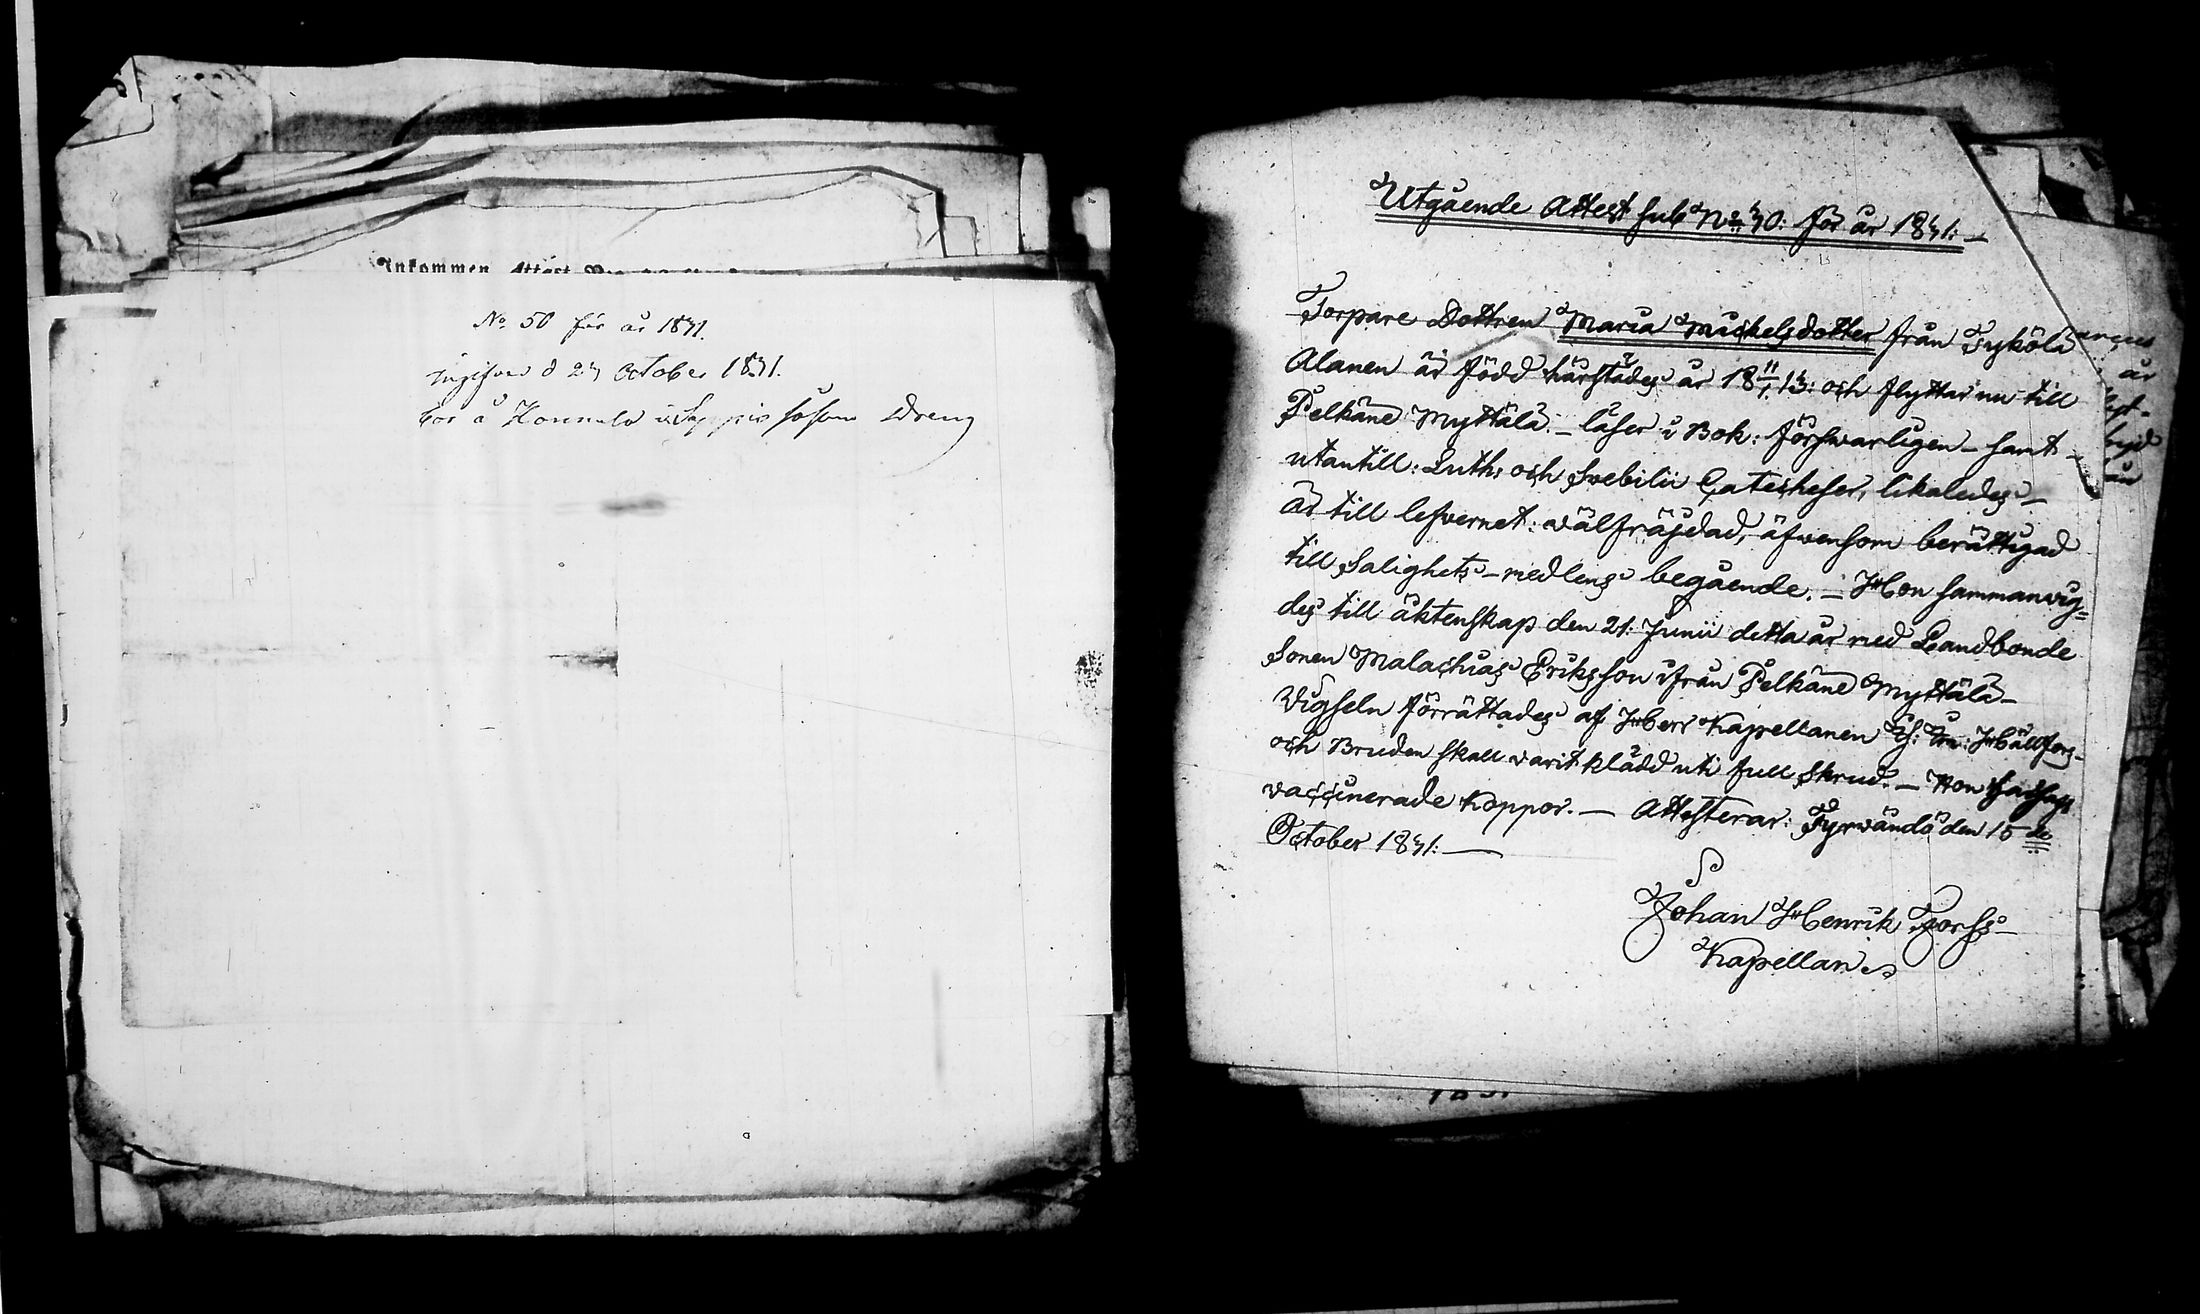 Inkommen Attest
No 50 för år 1841.
Ingifven d 24 October 1841.
bor å Konnula i Seppis såsom Dreng
Utgående Attest sub No 40: för år 1841:—
Torpare Dottren Maria Michelsdotter från Tyköla
Alanen är född härstädes år 18 11/1 13: och flyttar nu till
Pelkäne Myttälä:— läser i Bok: försvarligen — samt —
utantill: Luth: och Svebilii Catecheser, likaledes —
är till lefvernet: välfräjdad, äfvensom berättigad
till Salighets-medlens begående. — Hon sammanvig=
des till äktenskap den 21: Junii detta år med Landbonde
Sonen Malachias Eriksson ifrån Pelkäne Myttälä —
Vigseln förrättades af Herr Kapellanen Hällfors —
och Bruden skall varit klädd uti full skrud. — Hon har haft
vaccinerade koppor. — Attesterar: Tyrvändö den 15 de
October 1841: —
Johan Henrik Forss —
Kapellan.